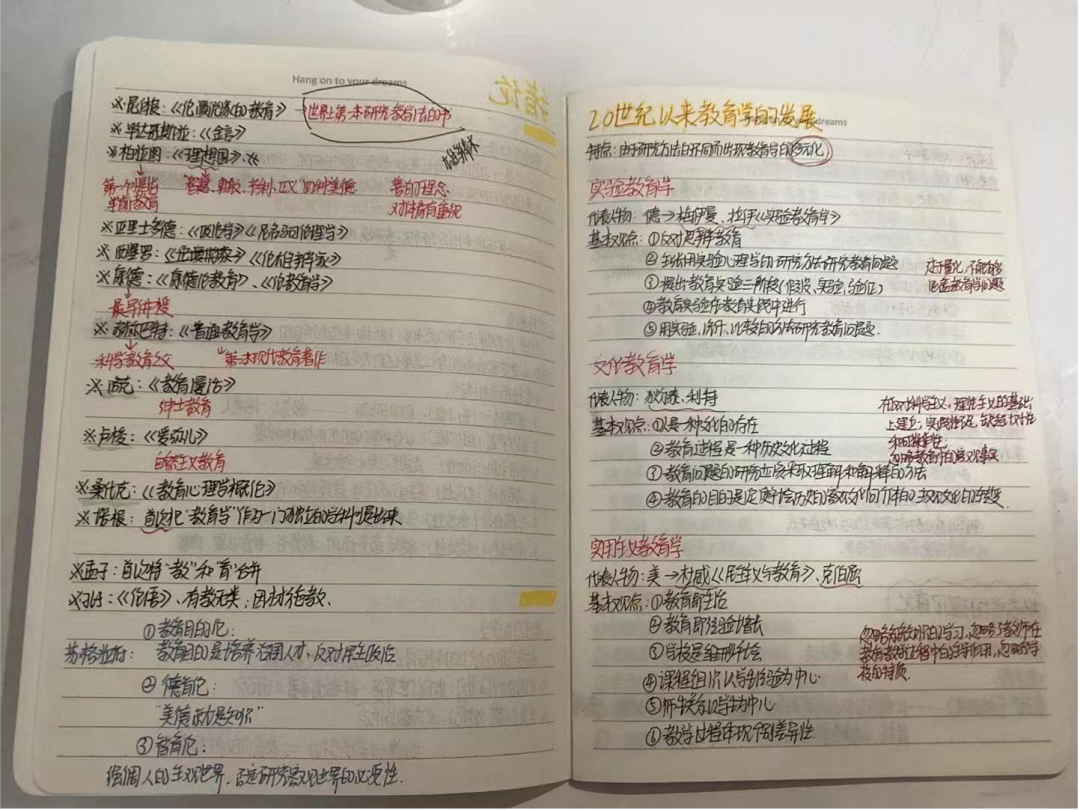 Hang on to your dreams
绪论
※昆体良:《论演说家的教育》→世界上第一本研究教育方法的书
※毕达哥斯拉:《金言》
※柏拉图:《理想国》、《
第一个提出
学前教育
"智慧、勇敢、节制、正义"四种美德
善的理念
对体育重视
※亚里士多德:《政治学》《尼各马可伦理学》
※西塞罗:《论演说家》《论雄辩家》
※康德:《康德论教育》、《论教育学》
最早讲授
※赫尔巴特:《普通教育学》
科学教育之父 "第一本现代教育著作
※洛克:《教育漫话》
绅士教育
※卢梭:《爱弥儿》
自然主义教育
※桑代克:《教育心理学概论》
※培根:首次把"教育学"作为一门独立的学科提出来
※孟子:首次将"教"和"育"合并
※孔子:《论语》、有教无类;因材施教、
①教育目的论:
苏格拉底: 教育目的是培养治国人才,反对民主政治
②德育论:
"美德就是知识"
③智育论:
强调人的主观世界,否定研究客观世界的必要性.
20世纪以来教育学的发展
dreams
特点:由于研究方法的不同而出现教育学的多元化
实验教育学
代表人物:德→梅伊曼、拉伊《实验教育学》
基本观点:①反对思辨教育
②主张用实验心理学的研究方法研究教育问题
③提出教育实验三阶段(假设、实验、验证)
④教育实验在教育实践中进行
⑤用实验、统计、比较的方法研究教育问题.
过于量化,不能够
涵盖教育学问题
文化教育学
代表人物:狄尔泰、利特
基本观点:①人是一种文化的存在
②教育过程是一种历史文化过程
③教育问题的研究应采取理解和解释的方法
④教育的目的是
在反对科学主义,理性主义的基础
上建立;实践性
忽略教育的
实用主义教育学
代表人物:美→杜威《民主主义与教育》、克伯屈
基本观点:①教育即生活
②教育即经验增长
③学校是雏形社会
④课程组织以学生经验为中心
⑤师生关系以学生为中心
⑥教学过程中重视个别差异性.
忽略系统知识的学习,忽略了教师在
教育教学过程中的主导作用,忽略学
校的特质.